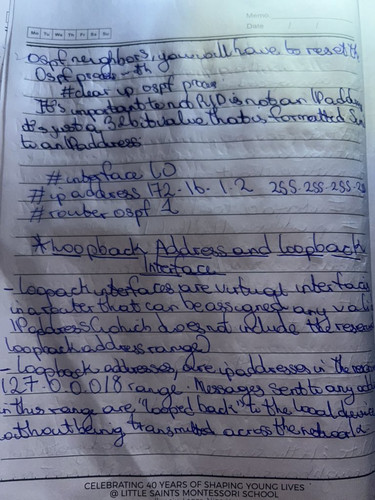 Mo Tu We Th Fr Sa Su
Date
OSPF neighbors, you will have to reset the
OSPF process - th
#clear ip ospf proces
It's important to note RID is not an IP address
it's just a 32 bit value that is formatted
to an IP address
#interface L0
#ip address 172.16.1.2 255.255.255.2
#router ospf 1
*Loopback Address and Loopback
Interface
- Loopback interfaces are virtual interface
in a router that can be assigned any valid
IP address (which does not include the reser
loopback address range)
- Loopback addresses, are ip addresses in the
127.0.0.0/8 range. Messages sent to any
in this range are "looped back" to the local device
without being transmitted across the network
CELEBRATING 40 YEARS OF SHAPING YOUNG LIVES
@ LITTLE SAINTS MONTESSORI SCHOOL